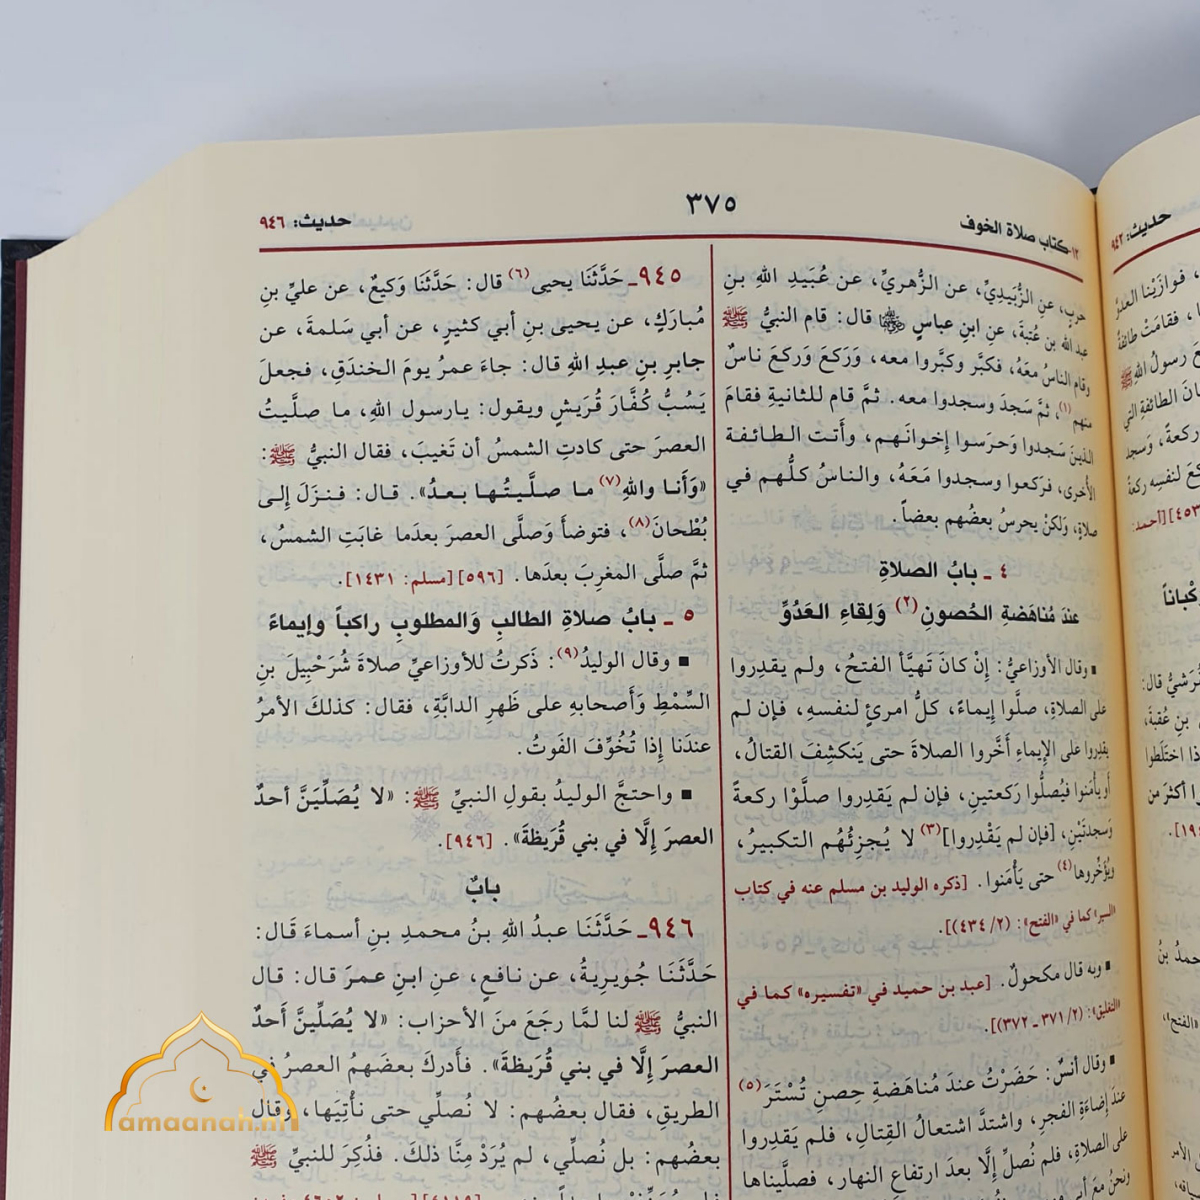 ١٢- كتاب صلاة الخوف
٣٧٥
حديث: ٩٤٦
حربٍ، عنِ الزُّبَيدِيِّ، عن الزُّهريِّ، عن عُبَيدِ اللهِ بنِ
عبد الله بن عُتبةَ، عنِ ابنِ عباسٍ ﷺ قال: قام النبيُّ ﷺ
وقام الناسُ معَهُ، فكبَّر وكبَّروا معه، وَرَكعَ وَركعَ ناسٌ
منهم (١)، ثمَّ سَجدَ وسجدوا معه. ثمَّ قام للثانيةِ فقامَ
الذينَ سَجدوا وَحرَسوا إخوانَهم، وأَتت الطائفة
الأُخرى، فركعوا وسجدوا مَعَهُ، والناسُ كلُّهم في
صلاةٍ، وَلكنْ يحرسُ بعضُهم بعضاً.
٤ ـ بابُ الصلاةِ
عندَ مُناهَضةِ الحُصونِ (٢) وَلِقاءِ العَدُوِّ
▪ وقال الأوزاعيُّ: إنْ كانَ تَهيَّأ الفتحُ، ولم يقدِروا
على الصلاةِ، صلَّوا إيماءً، كلُّ امرئٍ لنفسهِ، فإن لم
يقدِروا على الإيماءِ أخَّروا الصلاةَ حتى يَنكشِفَ القتالُ،
أو يأْمَنوا فيُصلُّوا رَكعتينِ، فإن لم يَقدِروا صلَّوْا ركعةً
وَسجدتَيْنِ، [فإن لم يَقْدِروا] (٣) لا يُجزِئُهُم التكبيرُ،
ويُؤَخِّروها (٤) حتى يَأْمَنوا. [ذكره الوليد بن مسلم عنه في كتاب
«السير» كما في «الفتح»: (٢/ ٤٣٤)].
▪ وبه قال مكحولٌ. [عبد بن حميد في «تفسيره» كما في
«التغليق»: (٢/ ٣٧١ ـ ٣٧٢)].
▪ وقال أنسٌ: حَضَرْتُ عندَ مُناهَضةِ حِصنِ تُسْتَرَ (٥)
عندَ إضاءَةِ الفجرِ، واشتدَّ اشتعالُ القِتالِ، فلم يَقدِروا
على الصلاةِ، فلم نُصلِّ إلَّا بعدَ ارتفاعِ النهار، فصلَّيناها
٩٤٥ـ حَدَّثَنَا يحيى (٦) قال: حَدَّثَنَا وَكيعٌ، عن عليِّ بنِ
مُبارَكٍ، عن يحيى بنِ أبي كثيرٍ، عن أبي سَلمةَ، عن
جابرِ بنِ عبدِ اللهِ قال: جاءَ عمرُ يومَ الخندَقِ، فجعلَ
يَسُبُّ كُفَّارَ قُرَيشٍ ويقول: يارسول اللهِ، ما صلَّيتُ
العصرَ حتى كادتِ الشمسُ أن تَغيبَ، فقال النبيُّ ﷺ:
«وَأَنا واللهِ (٧) ما صلَّيتُها بعدُ». قال: فنزَلَ إلى
بُطْحانَ (٨)، فتوضأَ وَصلَّى العصرَ بعدَما غابَتِ الشمسُ،
ثمَّ صلَّى المغرِبَ بعدَها. [٥٩٦] [مسلم: ١٤٣١].
٥ ـ بابُ صلاةِ الطالبِ وَالمطلوبِ راكباً وإيماءً
▪ وقال الوليدُ (٩): ذَكرتُ للأوزاعيِّ صلاةَ شُرَحْبِيلَ بنِ
السِّمْطِ وَأَصحابهِ على ظَهرِ الدابَّةِ، فقال: كذلكَ الأمرُ
عندَنا إذا تُخُوِّفَ الفَوتُ.
▪ واحتجَّ الوليدُ بقولِ النبيِّ ﷺ: «لا يُصَلِّيَنَّ أحدٌ
العصرَ إلَّا في بني قُرَيظةَ». [٩٤٦].
بابٌ
٩٤٦ـ حَدَّثَنَا عبدُ اللهِ بنُ محمدِ بنِ أسماءَ قَال:
حَدَّثَنَا جُويرِيةُ، عن نافعٍ، عنِ ابنِ عمرَ قال: قال
النبيُّ ﷺ لنا لمَّا رجَعَ منَ الأحزاب: «لا يُصَلِّيَنَّ أَحدٌ
العصرَ إلَّا في بني قُريظةَ». فأَدركَ بعضَهمُ العصرُ في
الطريقِ، فقال بعضُهم: لا نُصلِّي حتى نأْتِيَها، وقال
بعضُهم: بل نُصلِّي، لم يُرَدْ مِنَّا ذلكَ. فذُكِرَ للنبيِّ ﷺ
حديث: ٩٤٢
amaanah.nl